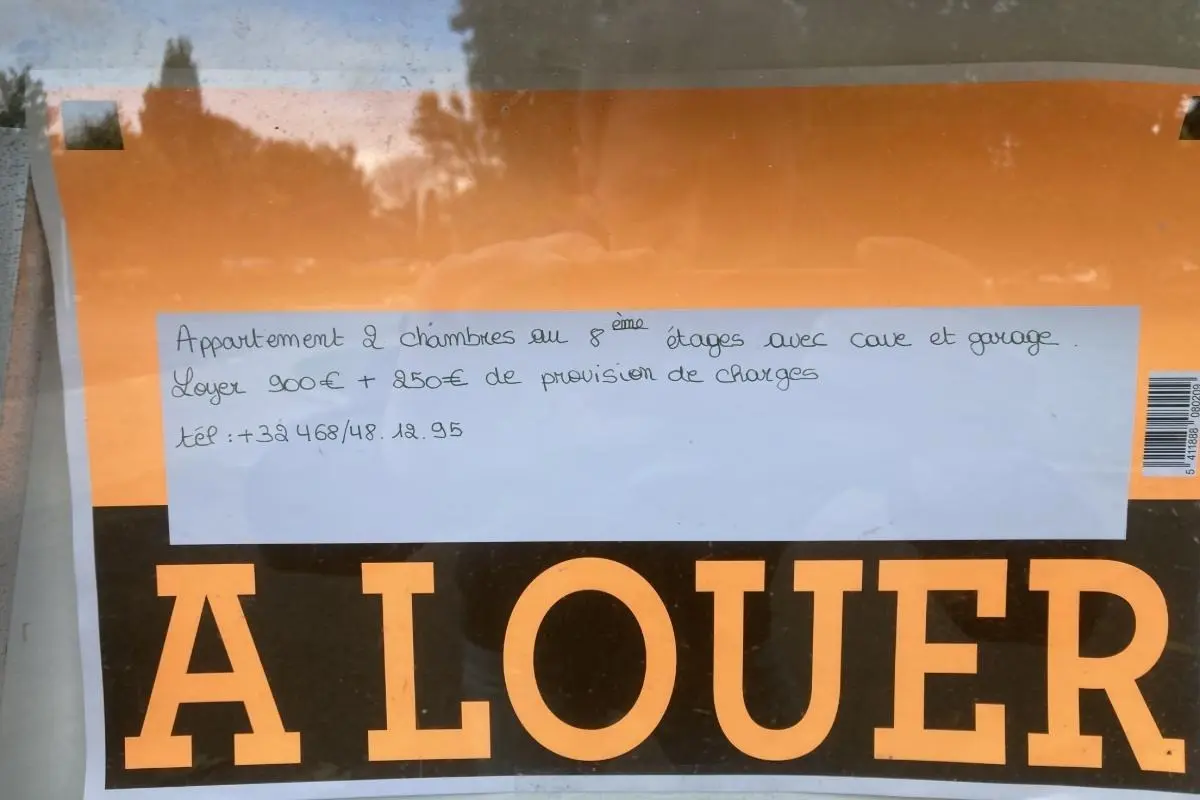 Appartement 2 chambres au 8ème étages avec cave et garage.
Loyer 900€ + 250€ de provision de charges
tél : +32 468/48.12.95
5 411888 080209
A LOUER